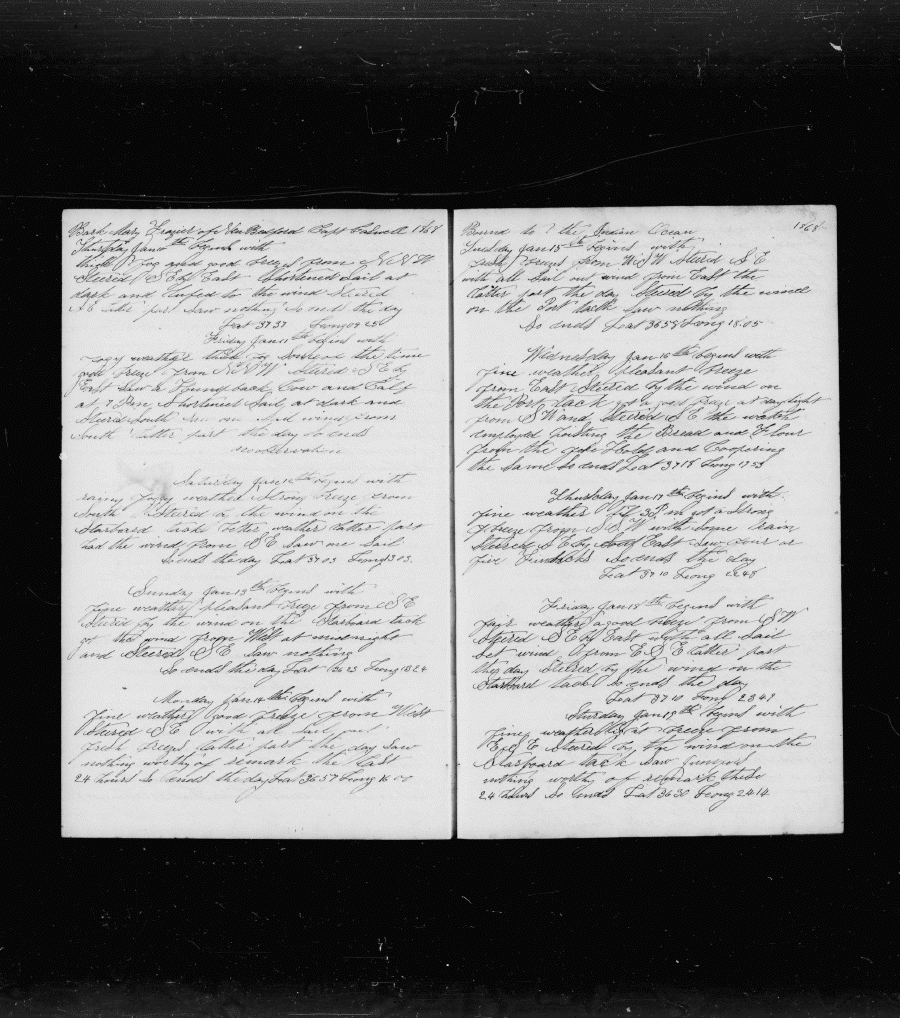 Bark Mary Frazier of New Bedford Capt Caswell 1868
Thursday Jan 10th begins with
thick fog and good breeze from N N W
Steered S E by East Shortened sail at
dark and luffed to the wind Steered
S E latter part saw nothing So ends the day
Lat 37 37 Long 09 25
Friday Jan 11th begins with
foggy weather thick fog the time
good breeze from N N W Steered S E by
East saw a Humpback Cow and Calf
at 7 Pm Shortened Sail at dark and
Steered South wind from
South latter part the day So ends
no observation
Saturday Jan 12th begins with
rainy foggy weather strong breeze from
South Steered by the wind on the
Starboard tack better weather latter part
had the wind from S E Saw one Sail
So ends the day Lat 37 03 Long 13 03
Sunday Jan 13th begins with
fine weather pleasant breeze from S E
Steered by the wind on the Starboard tack
got the wind from West at midnight
and Steered S E Saw nothing
So ends the day Lat 36 23 Long 13 24
Monday Jan 14th begins with
fine weather good breeze from West
Steered S E with all sail out
fresh breeze latter part the day Saw
nothing worthy of remark the last
24 hours So ends the day Lat 36 57 Long 16 00
Bound to the Indian Ocean 1868
Tuesday Jan 15th begins with
fresh breezes from W S W Steered S E
with all Sail out wind from East the
latter part the day Steered by the wind
on the Port tack saw nothing
So ends Lat 36 58 Long 18 05
Wednesday Jan 16th begins with
fine weather pleasant breeze
from East Steered by the wind on
the Port tack got a good breeze at daylight
from S W and Steered S E the watch
employed hoisting the Bread and Flour
from the fore Hold and Coopering
the same So ends Lat 37 18 Long 19 53
Thursday Jan 17th begins with
fine weather at 3 Pm got a strong
breeze from S S W with some rain
Steered S E by East Saw four or
five Finbacks So ends the day
Lat 37 10 Long 22 48
Friday Jan 18th begins with
fair weather a good breeze from S W
Steered S E by East with all Sail
set wind from E S E latter part
the day Steered by the wind on the
Starboard tack So ends the day
Lat 37 10 Long 23 49
Sturday Jan 19th begins with
fine weather light breeze from
E S E Steered by the wind on the
Starboard tack Saw jumpers
nothing worthy of remark these
24 hours So ends Lat 36 30 Long 24 14